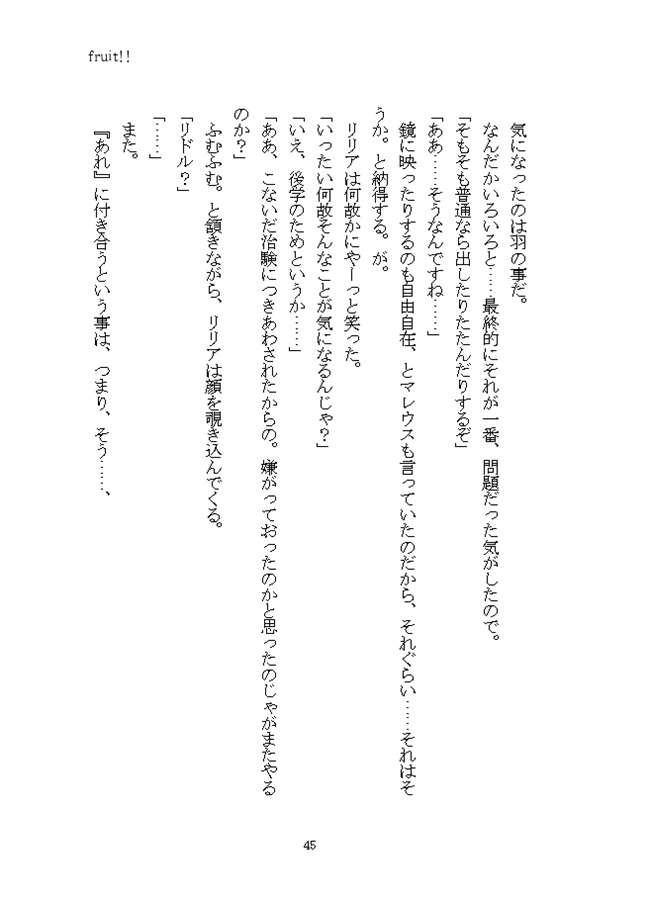 fruit!!
気になったのは羽の事だ。
なんだかいろいろと……最終的にそれが一番、問題だった気がしたので。
「そもそも普通なら出したりたたんだりするぞ」
「ああ……そうなんですね……」
鏡に映ったりするのも自由自在、とマレウスも言っていたのだから、それぐらい……それはそ
うか。と納得する。が。
リリアは何故かにやーっと笑った。
「いったい何故そんなことが気になるんじゃ？」
「いえ、後学のためというか……」
「ああ、こないだ治験につきあわされたからの。嫌がっておったのかと思ったのじゃがまたやる
のか？」
ふむふむ。と頷きながら、リリアは顔を覗き込んでくる。
「リドル？」
「……」
また。
『あれ』に付き合うという事は、つまり、そう……、
45